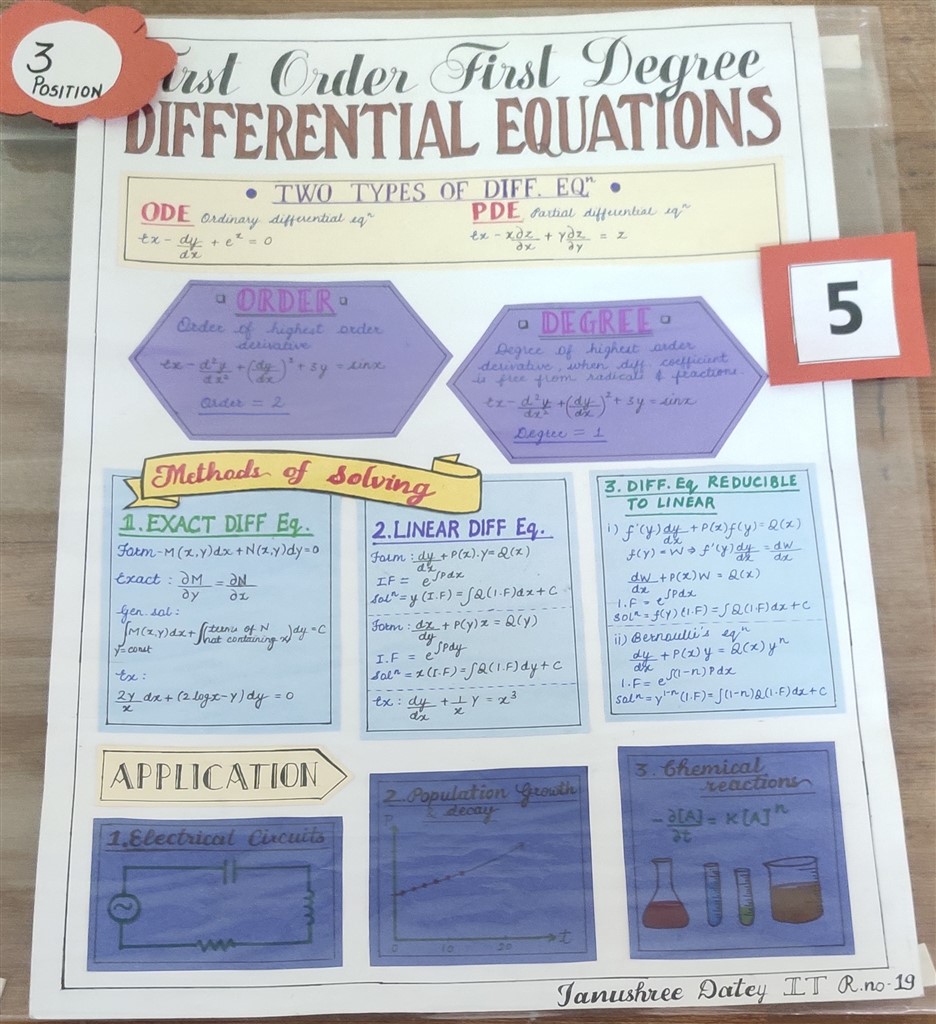 3
POSITION
First Order First Degree
DIFFERENTIAL EQUATIONS
• TWO TYPES OF DIFF. EQⁿ •
ODE Ordinary differential eqⁿ
ex - dy/dx + eˣ = 0
PDE Partial differential eqⁿ
ex - x ∂z/∂x + y ∂z/∂y = z
5
ORDER
Order of highest order
derivative
ex - d²y/dx² + (dy/dx)² + 3y = sinx
Order = 2
DEGREE
Degree of highest order
derivative, when diff. coefficient
is free from radicals & fractions.
ex - d²y/dx² + (dy/dx)² + 3y = sinx
Degree = 1
Methods of Solving
1. EXACT DIFF Eq.
Form - M(x,y)dx + N(x,y)dy = 0
Exact : ∂M/∂y = ∂N/∂x
Gen. sol:
∫M(x,y)dx + ∫(terms of N not containing x)dy = C
y=const
Ex:
2y/x dx + (2logx-y)dy = 0
2. LINEAR DIFF Eq.
Form : dy/dx + P(x).y = Q(x)
I.F = e^∫Pdx
Solⁿ = y(I.F) = ∫Q(I.F)dx + C
Form : dx/dy + P(y)x = Q(y)
I.F = e^∫Pdy
Solⁿ = x(I.F) = ∫Q(I.F)dy + C
Ex : dy/dx + 1/x y = x³
3. DIFF. Eq REDUCIBLE
TO LINEAR
i) f'(y) dy/dx + P(x)f(y) = Q(x)
f(y) = W ⇒ f'(y) dy/dx = dW/dx
dW/dx + P(x)W = Q(x)
I.F = e^∫Pdx
Solⁿ = f(y)(I.F) = ∫Q(I.F)dx + C
ii) Bernoulli's eqⁿ
dy/dx + P(x)y = Q(x)yⁿ
I.F = e^∫(1-n)Pdx
Solⁿ = y¹⁻ⁿ(I.F) = ∫(1-n)Q(I.F)dx + C
APPLICATION
1. Electrical Circuits
2. Population Growth
& decay
P
0 10 20 t
3. Chemical
reactions
-∂[A]/∂t = K[A]ⁿ
Tanushree Datey IT R.no-19